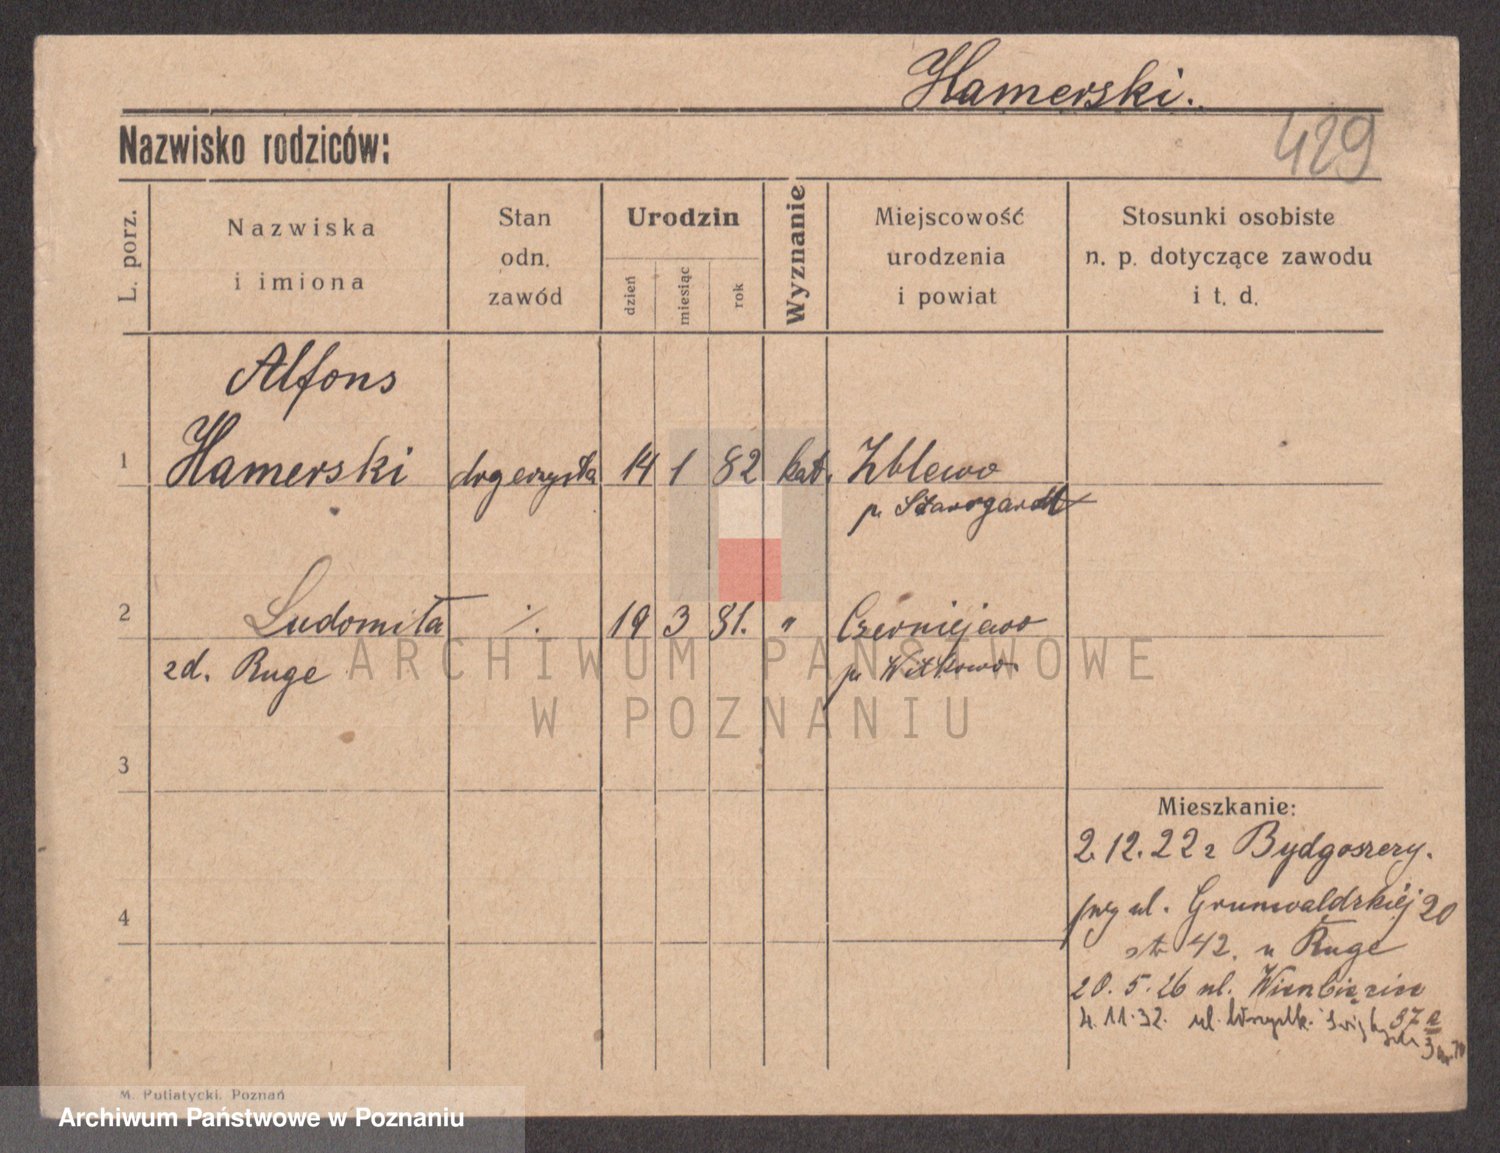 Hamerski.
429
Nazwisko rodziców:
L. porz.
Nazwiska
i imiona
Stan
odn.
zawód
Urodzin
dzień
miesiąc
rok
Wyznanie
Miejscowość
urodzenia
i powiat
Stosunki osobiste
n. p. dotyczące zawodu
i t. d.
Alfons
1 Hamerski drogerzysta 14 1 82 kat. Zblewo
p. Starogardt
2 Ludomiła ./. 19 3 81. " Czerniejewo
zd. Ruge p. Witkowo
ARCHIWUM PAŃSTWOWE
W POZNANIU
3
Mieszkanie:
2.12.22 z Bydgoszczy.
4
przy ul. Grunwaldzkiej 20
42. u Ruge
20.5.26 ul.
4.11.32. ul. 37a
M. Putiatycki, Poznań
Archiwum Państwowe w Poznaniu